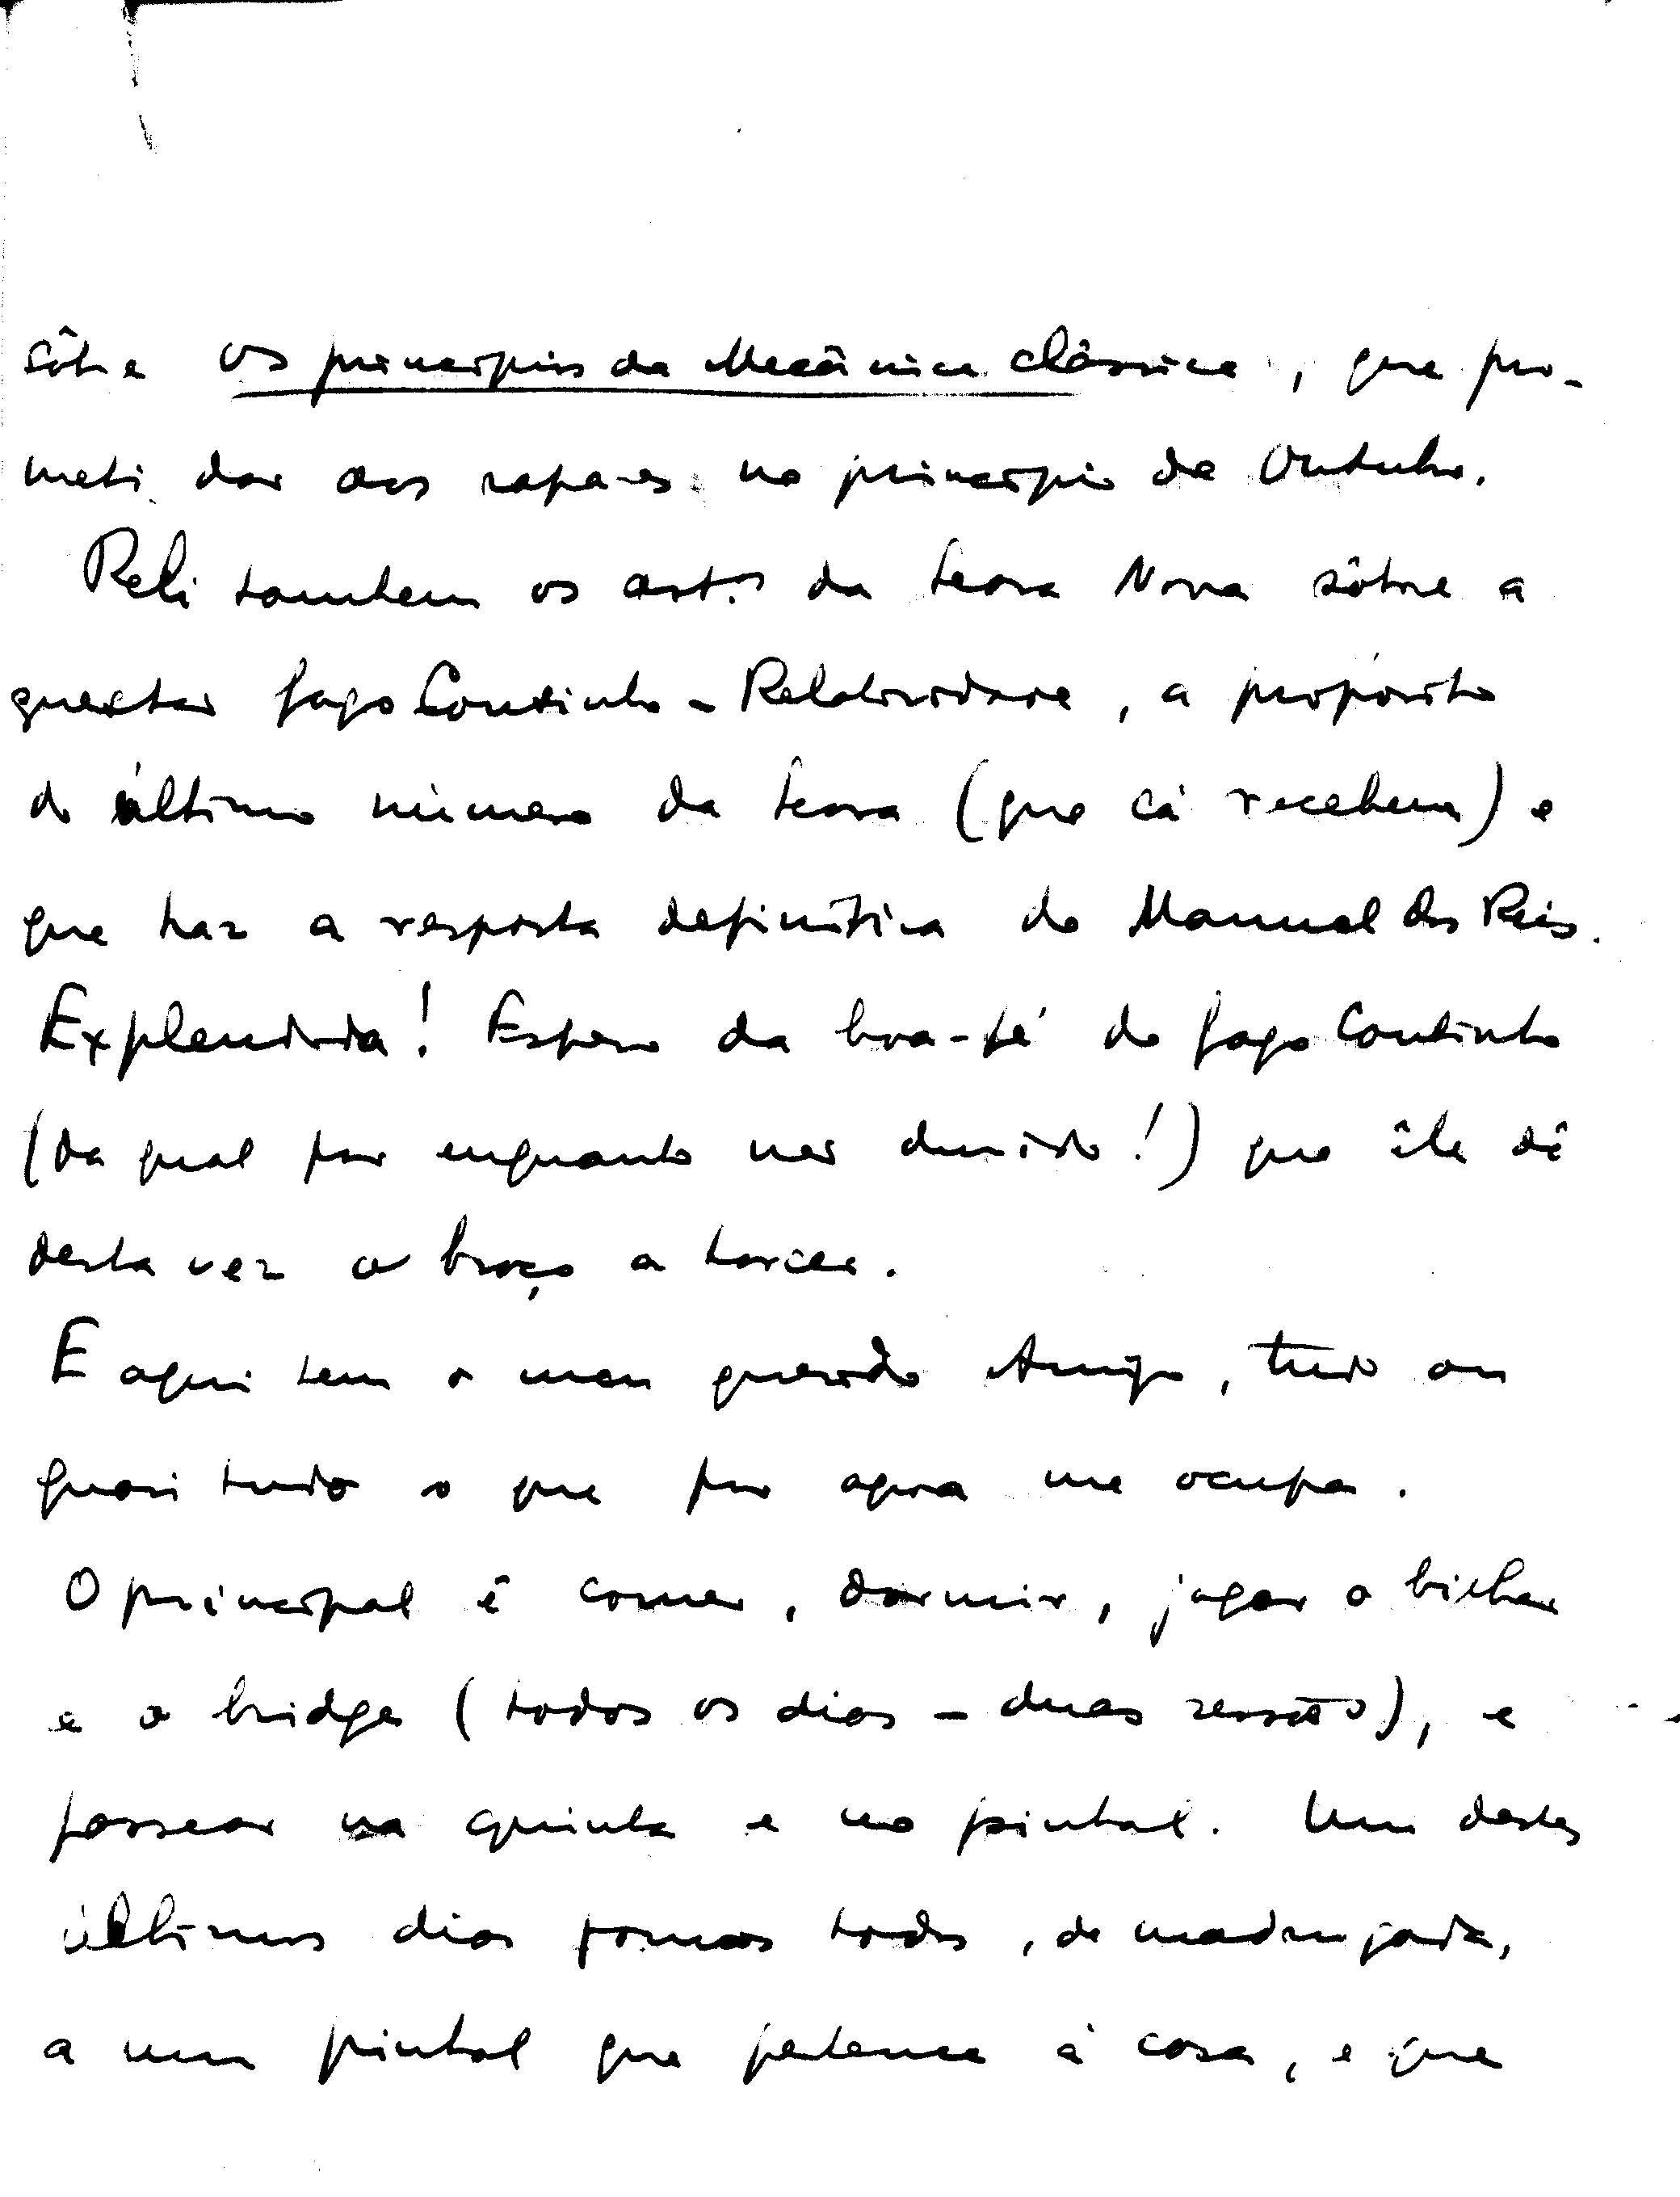 sôbre os princípios da Mecânica clássica, que pro-
meti dar aos rapazes no princípio de Outubro.
Reli tambem os art.ºs da Seara Nova sôbre a
questão Gago Coutinho - Relatividade, a propósito
do último número da Seara (que cá recebem) e
que traz a resposta definitiva do Manuel dos Reis.
Explendida! Espero da boa-fé do Gago Coutinho
(da qual por enquanto não duvido!) que êle dê
desta vez o braço a torcer.
E aqui tem o meu querido Amigo, tudo ou
quasi tudo o que por agora me ocupa.
O principal é comer, dormir, jogar o bilhar
e o bridge (todos os dias - duas sessões), e
passear na quinta e no pinhal. Um destes
últimos dias fomos todos, de madrugada,
a um pinhal que pertence à casa, e que